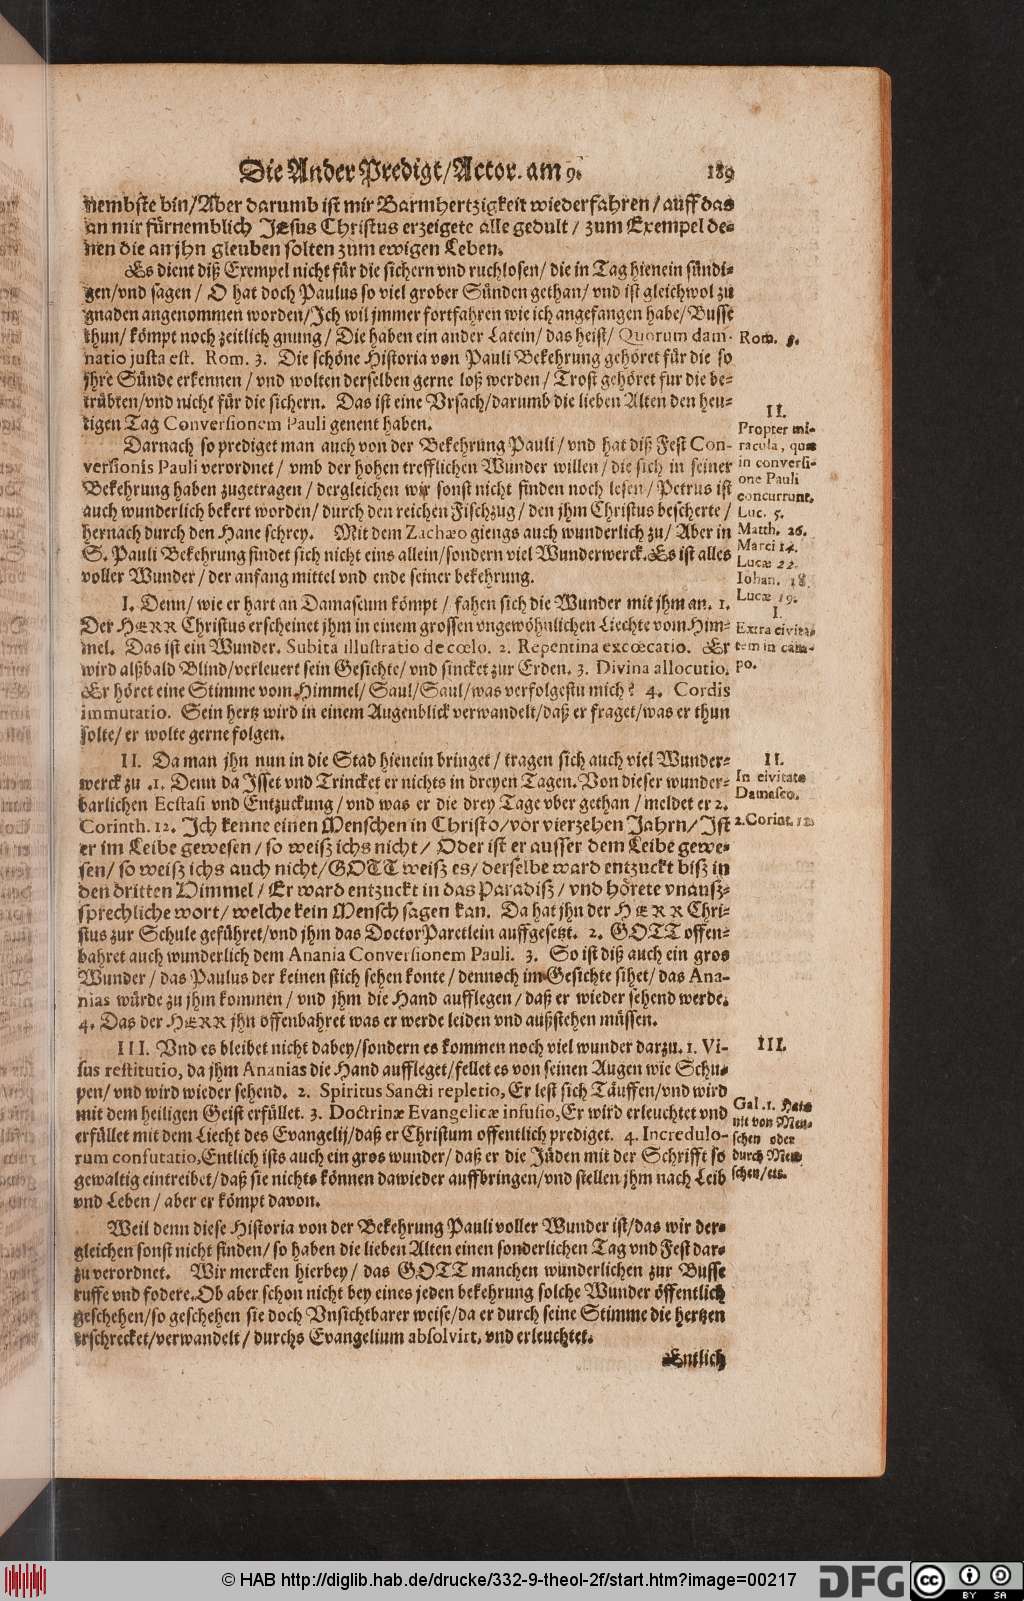 Die Ander Predigt/Actor. am 9. 189
nembste bin/Aber darumb ist mir Barmhertzigkeit wiederfahren/auff das
an mir fürnemblich Jesus Christus erzeigete alle gedult/ zum Exempel de-
nen die an jhn gleuben solten zum ewigen Leben.
Es dient diß Exempel nicht für die sichern vnd ruchlosen/ die in Tag hienein sündi-
gen/vnd sagen/ O hat doch Paulus so viel grober Sünden gethan/ vnd ist gleichwol zu
gnaden angenommen worden/Ich wil jmmer fortfahren wie ich angefangen habe/ Busse
thun/ kömpt noch zeitlich gnung/ Die haben ein ander Latein/ das heist/ Quorum dam-
natio justa est. Rom. 3. Die schöne Historia von Pauli Bekehrung gehöret für die so
jhre Sünde erkennen/ vnd wolten derselben gerne loß werden/ Trost gehöret fur die be-
trübten/vnd nicht für die sichern. Das ist eine Vrsach/darumb die lieben Alten den heu-
tigen Tag Conversionem Pauli genent haben.
Darnach so prediget man auch von der Bekehrung Pauli/ vnd hat diß Fest Con-
versionis Pauli verordnet/ vmb der hohen trefflichen Wunder willen/ die sich in seiner
Bekehrung haben zugetragen/ dergleichen wir sonst nicht finden noch lesen/ Petrus ist
auch wunderlich bekert worden/ durch den reichen Fischzug/ den jhm Christus bescherte/
hernach durch den Hane schrey. Mit dem Zachæo giengs auch wunderlich zu/ Aber in
S. Pauli Bekehrung findet sich nicht eins allein/sondern viel Wunderwerck. Es ist alles
voller Wunder/ der anfang mittel vnd ende seiner bekehrung.
I. Denn/ wie er hart an Damascum kömpt/ fahen sich die Wunder mit jhm an. 1.
Der HERR Christus erscheinet jhm in einem grossen vngewöhnlichen Liechte vom Him-
mel. Das ist ein Wunder. Subita illustratio de cœlo. 2. Repentina excœcatio. Er
wird alßbald Blind/verleuert sein Gesichte/ vnd sincket zur Erden. 3. Divina allocutio.
Er höret eine Stimme vom Himmel/ Saul/Saul/was verfolgestu mich? 4. Cordis
immutatio. Sein hertz wird in einem Augenblick verwandelt/daß er fraget/was er thun
solte/ er wolte gerne folgen.
II. Da man jhn nun in die Stad hienein bringet/ tragen sich auch viel Wunder-
werck zu .1. Denn da Isset vnd Trincket er nichts in dreyen Tagen. Von dieser wunder-
barlichen Ecstasi vnd Entzuckung/ vnd was er die drey Tage vber gethan/ meldet er 2.
Corinth. 12. Ich kenne einen Menschen in Christo/vor vierzehen Jahrn/ Ist
er im Leibe gewesen/ so weiß ichs nicht/ Oder ist er ausser dem Leibe gewe-
sen/ so weiß ichs auch nicht/GOTT weiß es/ derselbe ward entzuckt biß in
den dritten Himmel/ Er ward entzuckt in das Paradiß/ vnd hörete vnauß-
sprechliche wort/ welche kein Mensch sagen kan. Da hat jhn der HERR Chri-
stus zur Schule geführet/vnd jhm das Doctor Paretlein auffgesetzt. 2. GOTT offen-
bahret auch wunderlich dem Anania Conversionem Pauli. 3. So ist diß auch ein gros
Wunder/ das Paulus der keinen stich sehen konte/ dennoch im Gesichte sihet/ das Ana-
nias würde zu jhm kommen/ vnd jhm die Hand aufflegen/ daß er wieder sehend werde.
4. Das der HERR jhn offenbahret was er werde leiden vnd außstehen müssen.
III. Vnd es bleibet nicht dabey/sondern es kommen noch viel wunder darzu. 1. Vi-
sus restitutio, da jhm Ananias die Hand auffleget/fellet es von seinen Augen wie Schu-
pen/ vnd wird wieder sehend. 2. Spiritus Sancti repletio, Er lest sich Täuffen/vnd wird
mit dem heiligen Geist erfüllet. 3. Doctrinæ Evangelicæ infusio, Er wird erleuchtet vnd
erfüllet mit dem Liecht des Evangelij/daß er Christum offentlich prediget. 4. Incredulo-
rum confutatio, Entlich ists auch ein gros wunder/ daß er die Jüden mit der Schrifft so
gewaltig eintreibet/ daß sie nichts können dawieder auffbringen/vnd stellen jhm nach Leib
vnd Leben/ aber er kömpt davon.
Weil denn diese Historia von der Bekehrung Pauli voller Wunder ist/das wir der-
gleichen sonst nicht finden/ so haben die lieben Alten einen sonderlichen Tag vnd Fest dar-
zu verordnet. Wir mercken hierbey/ das GOTT manchen wunderlichen zur Busse
ruffe vnd fodere. Ob aber schon nicht bey eines jeden bekehrung solche Wunder öffentlich
geschehen/so geschehen sie doch Vnsichtbarer weise/da er durch seine Stimme die hertzen
erschrecket/verwandelt/ durchs Evangelium absolvirt, vnd erleuchtet.
Entlich
Rom. 8.
II.
Propter mi-
racula, quæ
in conversi-
one Pauli
concurrunt.
Luc. 5.
Matth. 26.
Marci 14.
Lucæ 22.
Iohan. 18.
Lucæ 19.
I.
Extra civita-
tem in cam-
po.
II.
In civitate
Damasco.
2. Corint. 12.
III.
Gal. 1. Hats
nit von Men-
schen oder
durch Men-
schen/etc.
© HAB http://diglib.hab.de/drucke/332-9-theol-2f/start.htm?image=00217
DFG
cc
BY SA